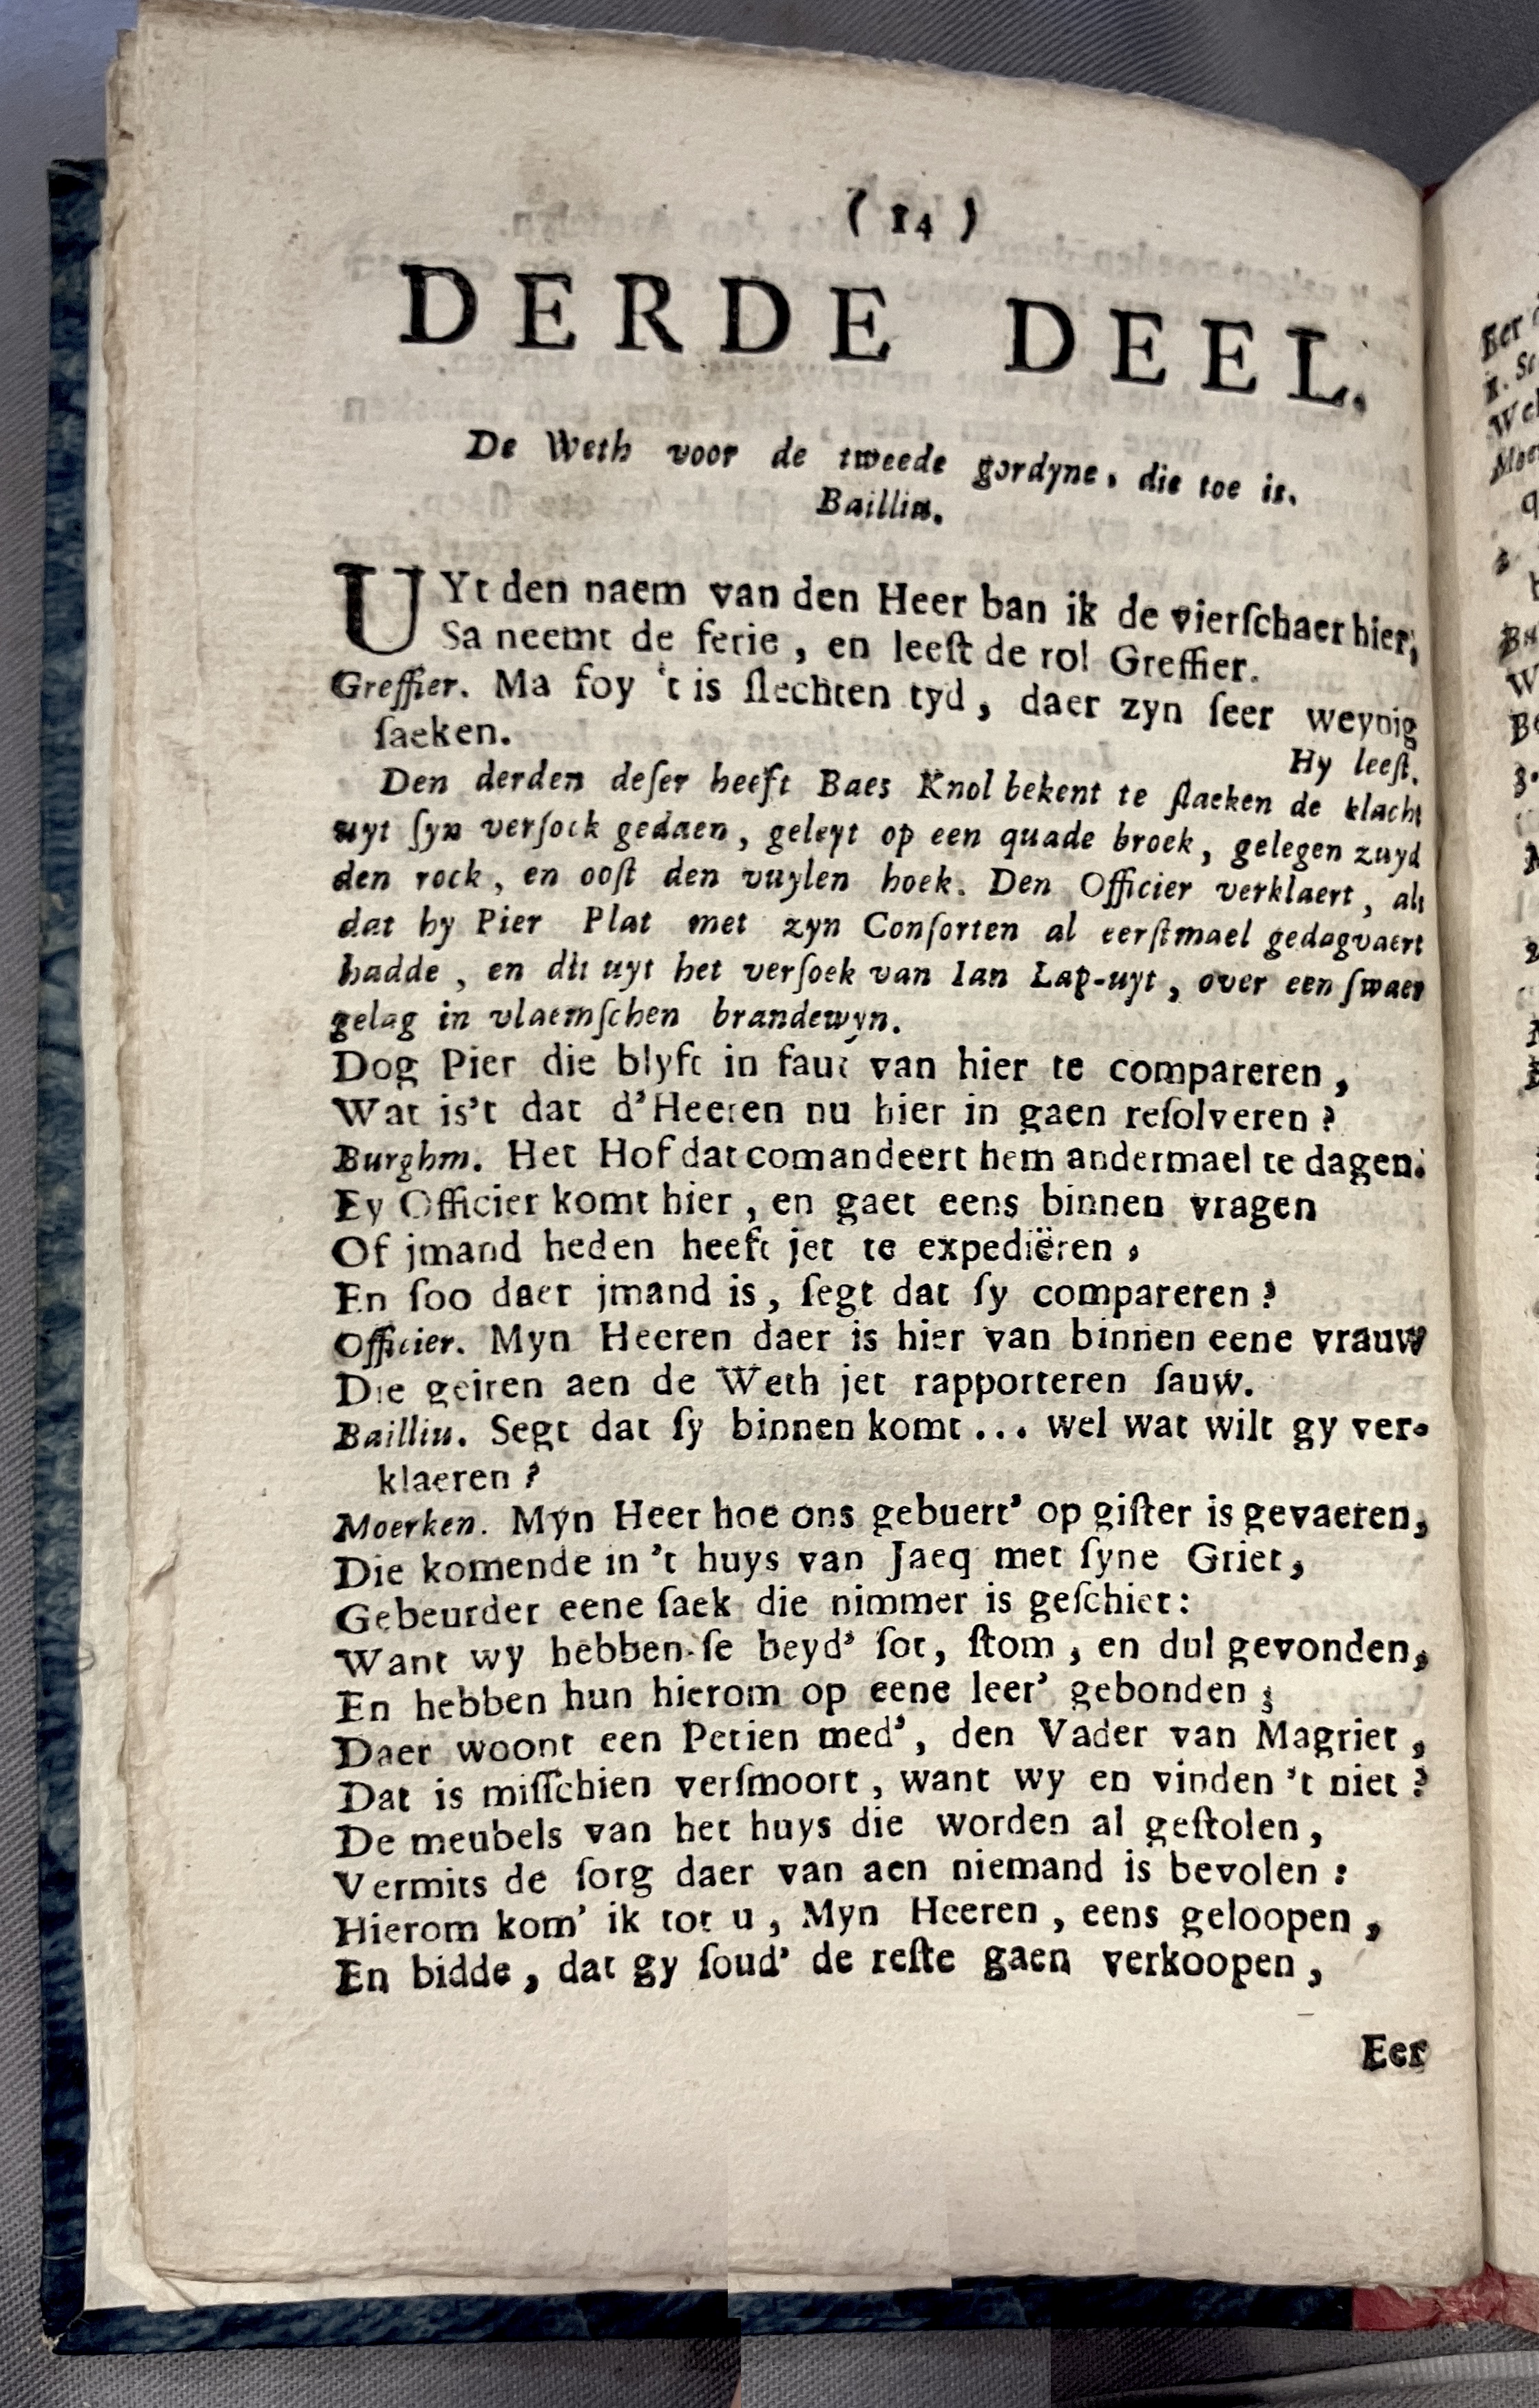 ( 14 )
DERDE DEEL.
De Weth voor de tweede gordyne, die toe is.
Bailliu.
UYt den naem van den Heer ban ik de vierſchaer hier,
Sa neemt de ferie, en leeſt de rol Greffier.
Greffier. Ma foy 't is ſlechten tyd, daer zyn ſeer weynig
ſaeken.
Hy leeſt.
Den derden deſer heeft Baes Knol bekent te ſlaeken de klacht
uyt ſyn verſock gedaen, geleyt op een quade broek, gelegen zuyd
den rock, en ooſt den vuylen hoek. Den Officier verklaert, als
dat hy Pier Plat met zyn Conſorten al eerſtmael gedagvaert
hadde, en dit uyt het verſoek van Ian Lap-uyt, over een ſwaer
gelag in vlaemſchen brandewyn.
Dog Pier die blyft in faut van hier te compareren,
Wat is't dat d'Heeren nu hier in gaen reſolveren?
Burghm. Het Hof dat comandeert hem andermael te dagen.
Ey Officier komt hier, en gaet eens binnen vragen
Of jmand heden heeft jet te expediëren,
En ſoo daer jmand is, ſegt dat ſy compareren?
Officier. Myn Heeren daer is hier van binnen eene vrauw
Die geiren aen de Weth jet rapporteren ſauw.
Bailliu. Segt dat ſy binnen komt... wel wat wilt gy ver-
klaeren?
Moerken. Myn Heer hoe ons gebuert' op giſter is gevaeren,
Die komende in 't huys van Jaeq met ſyne Griet,
Gebeurder eene ſaek die nimmer is geſchiet:
Want wy hebben-ſe beyd' ſot, ſtom, en dul gevonden,
En hebben hun hierom op eene leer' gebonden;
Daer woont een Petien med', den Vader van Magriet,
Dat is miſſchien verſmoort, want wy en vinden 't niet?
De meubels van het huys die worden al geſtolen,
Vermits de ſorg daer van aen niemand is bevolen:
Hierom kom' ik tot u, Myn Heeren, eens geloopen,
En bidde, dat gy ſoud' de reſte gaen verkoopen,
Eer